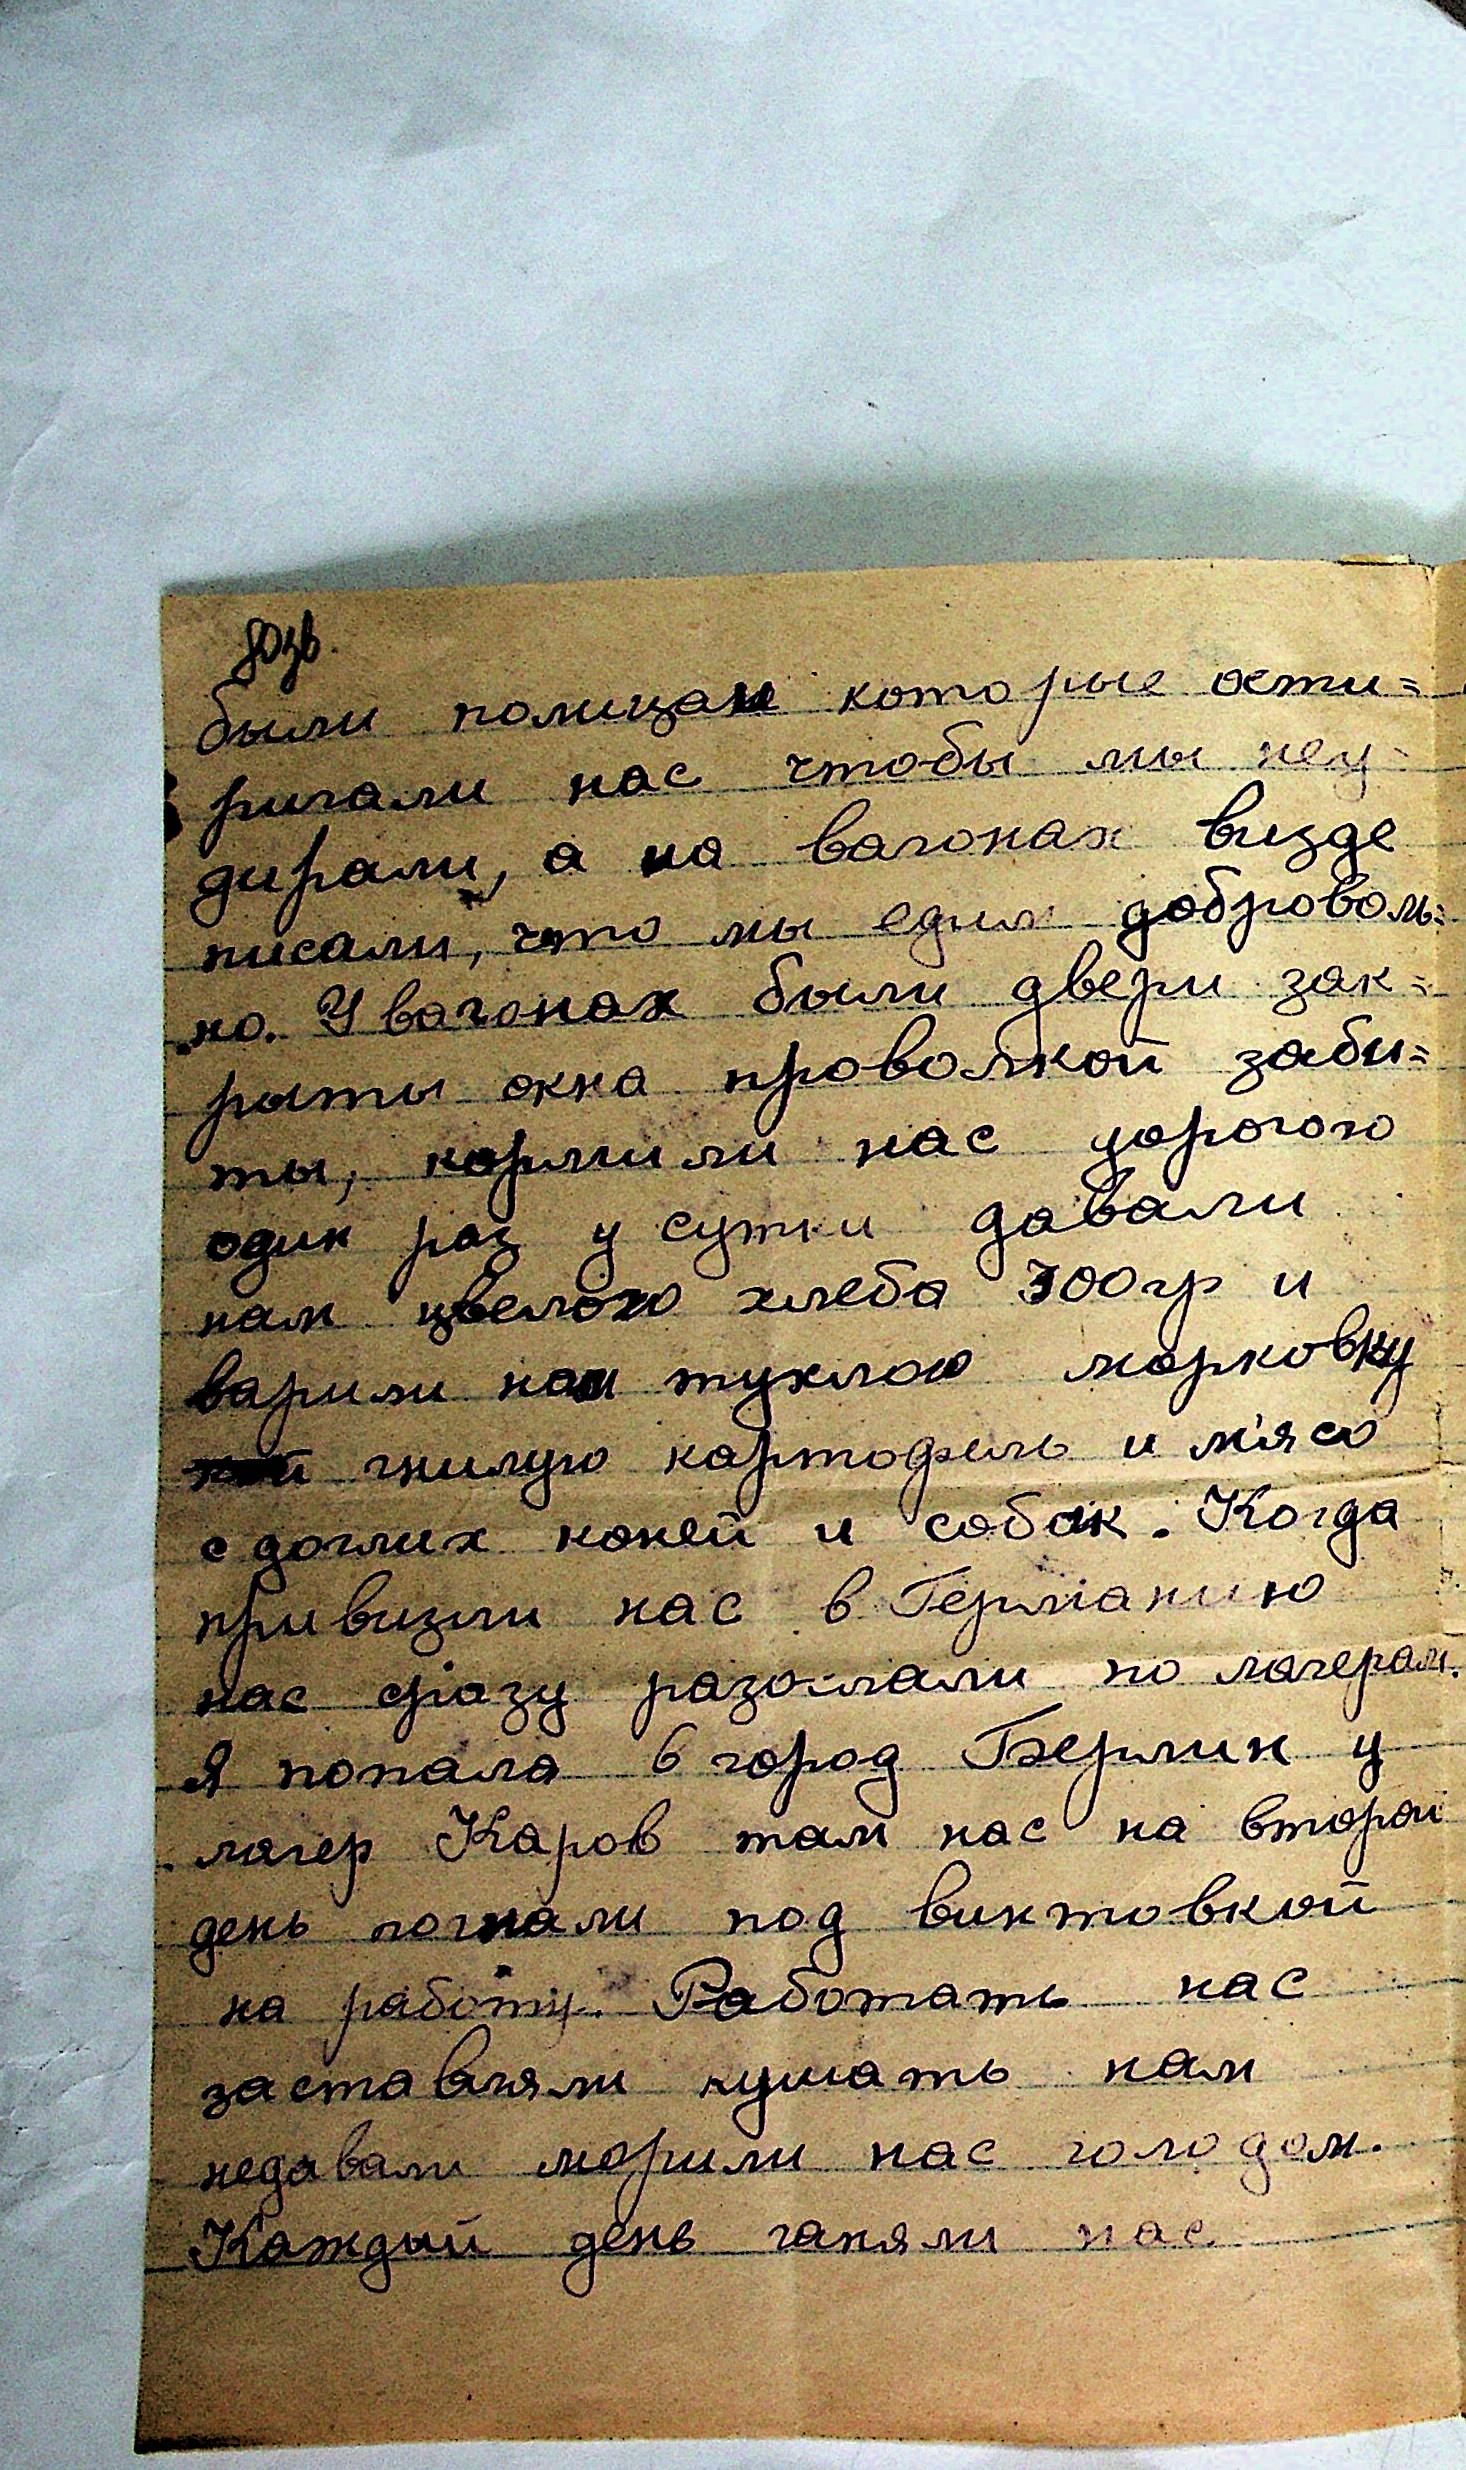 были полицаи которые ости=
ригали нас чтобы мы неу-
дирали, а на вагонах визде
писали, что мы едим доброволь=
но. У вагонах были двери зак=
рыты окна проволкой заби=
ты, кормили нас дорогою
один раз у сутки давали
нам цвелого хлеба 300гр и
варили нам тухлою морковку
гнилую картофель и м'ясо
сдоглих коней и собак. Когда
привизли нас в Германию
нас сразу разослали по лагерам.
Я попала в город Берлин у
лагер Каров там нас на второй
день погнали под винтовкой
на работу. Работать нас
заставляли кушать нам
недавали морили нас голодом.
Каждый день ганяли нас